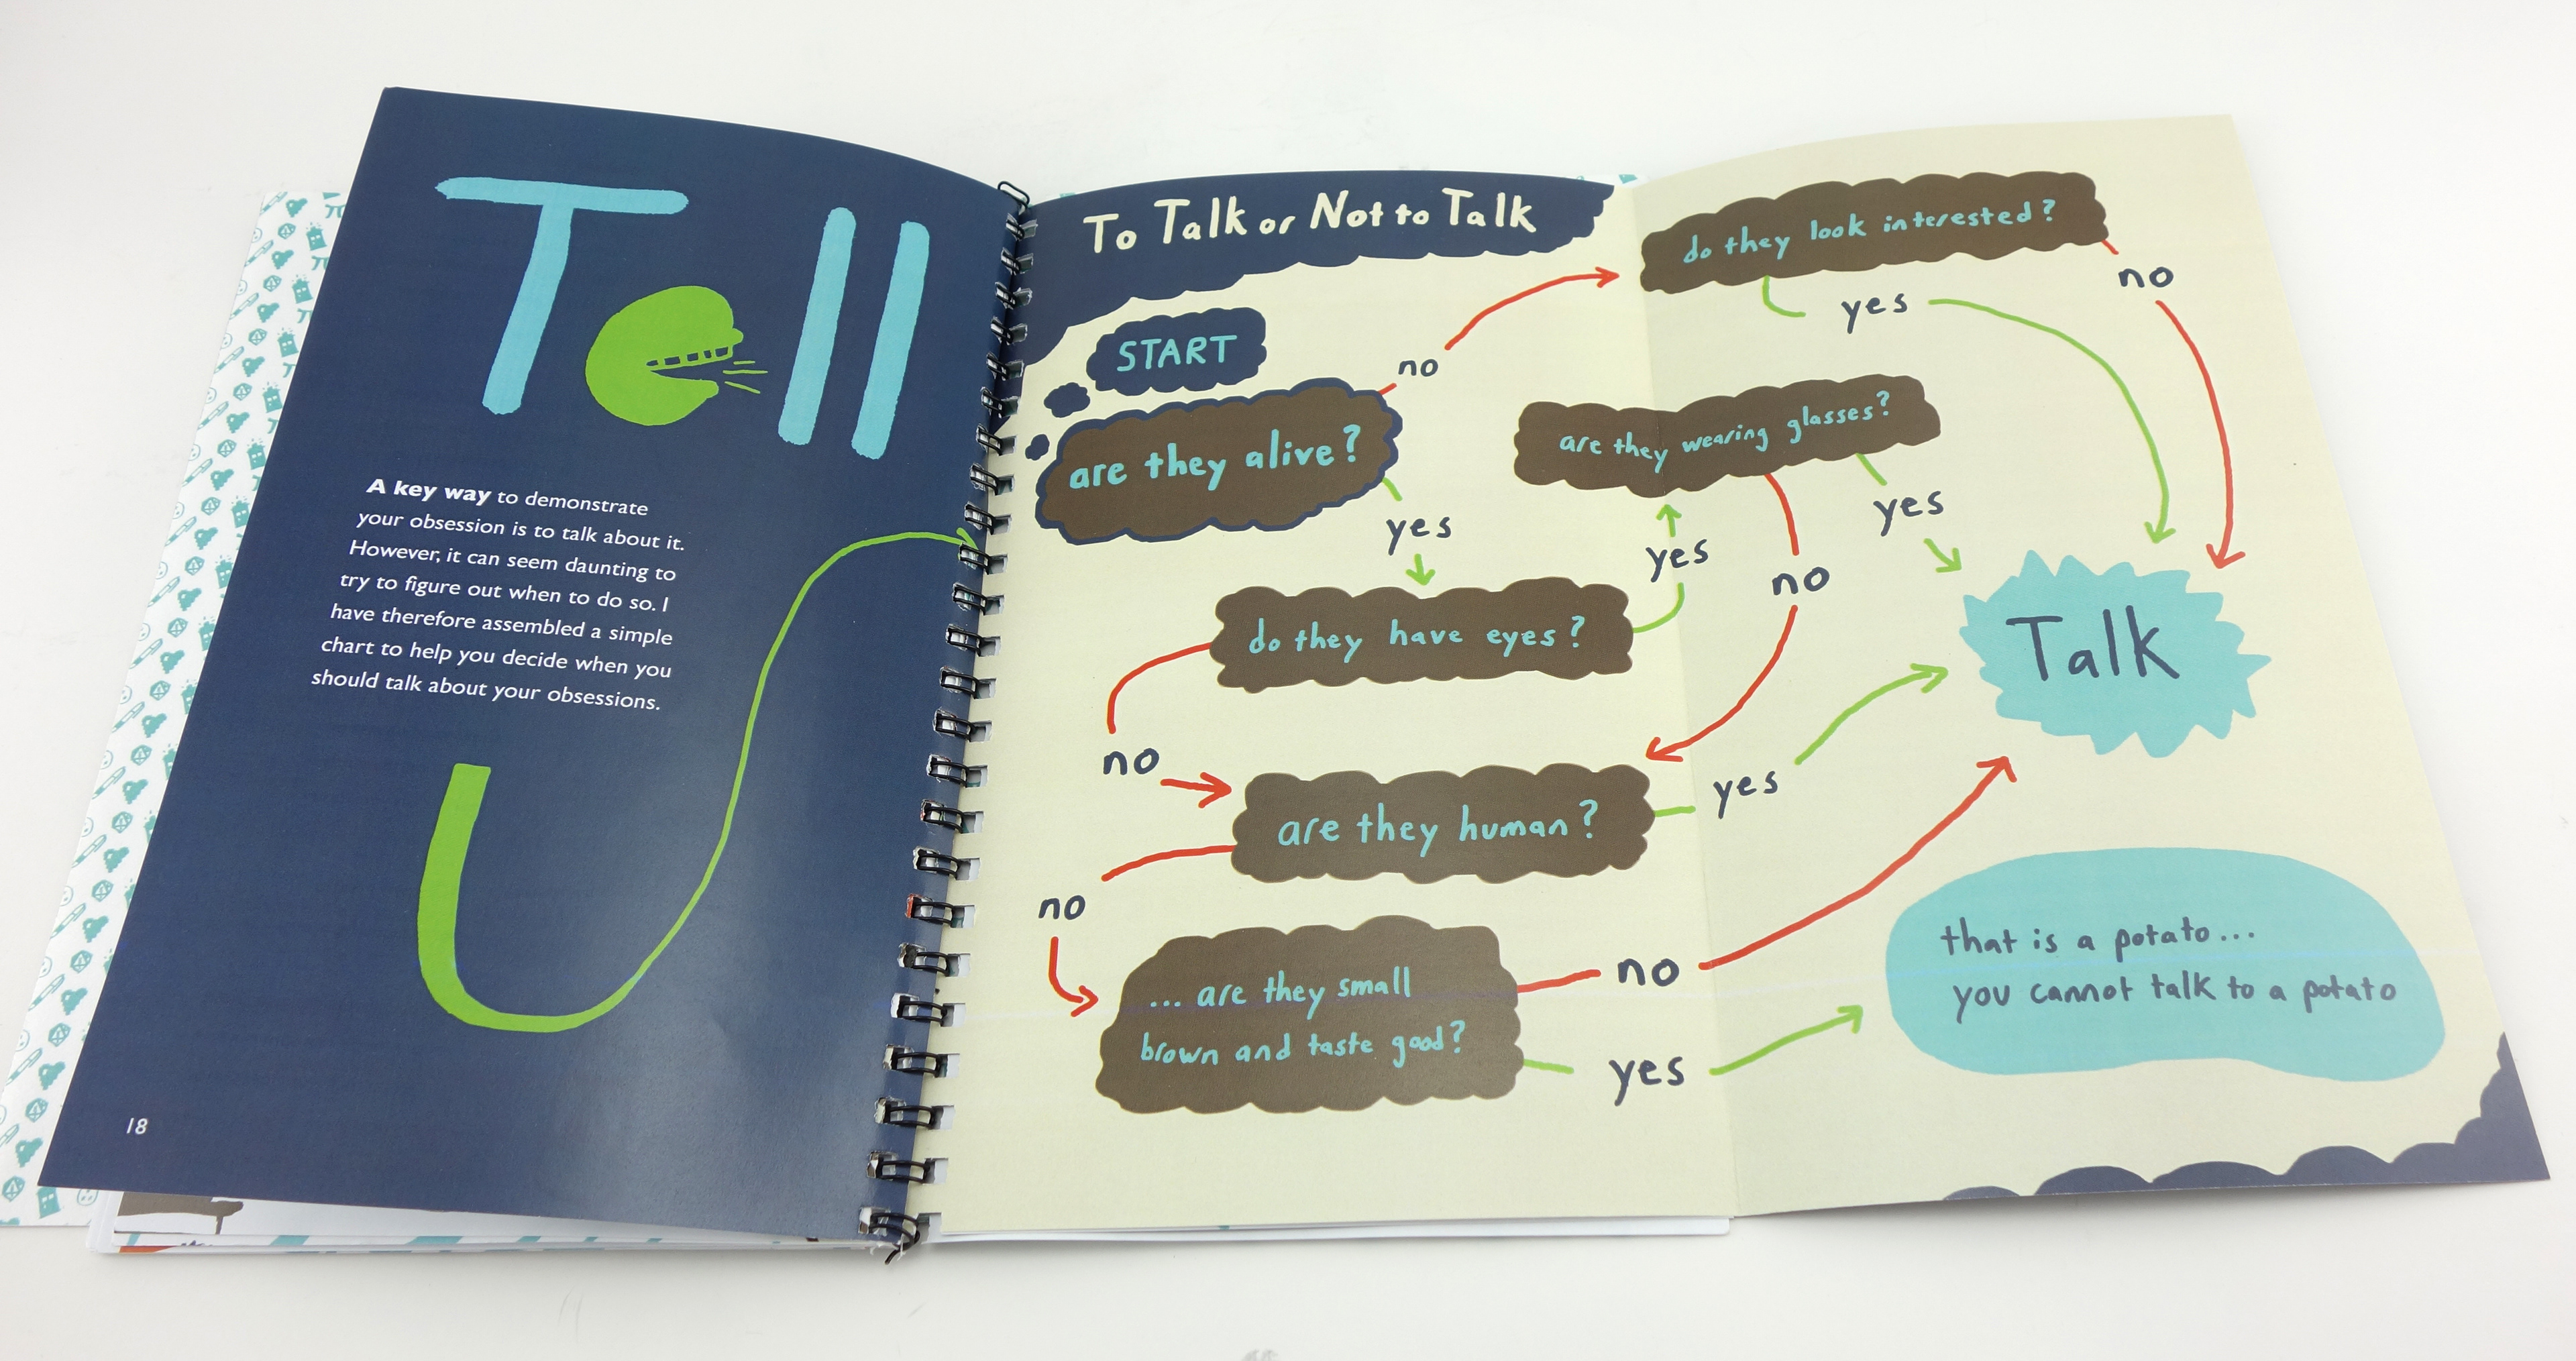 Tell
A key way to demonstrate
your obsession is to talk about it.
However, it can seem daunting to
try to figure out when to do so. I
have therefore assembled a simple
chart to help you decide when you
should talk about your obsessions.
18
To Talk or Not to Talk
START
are they alive?
no
yes
do they look interested?
yes
no
are they wearing glasses?
yes
no
do they have eyes?
yes
no
are they human?
yes
no
... are they small
brown and taste good?
no
yes
Talk
that is a potato...
you cannot talk to a potato